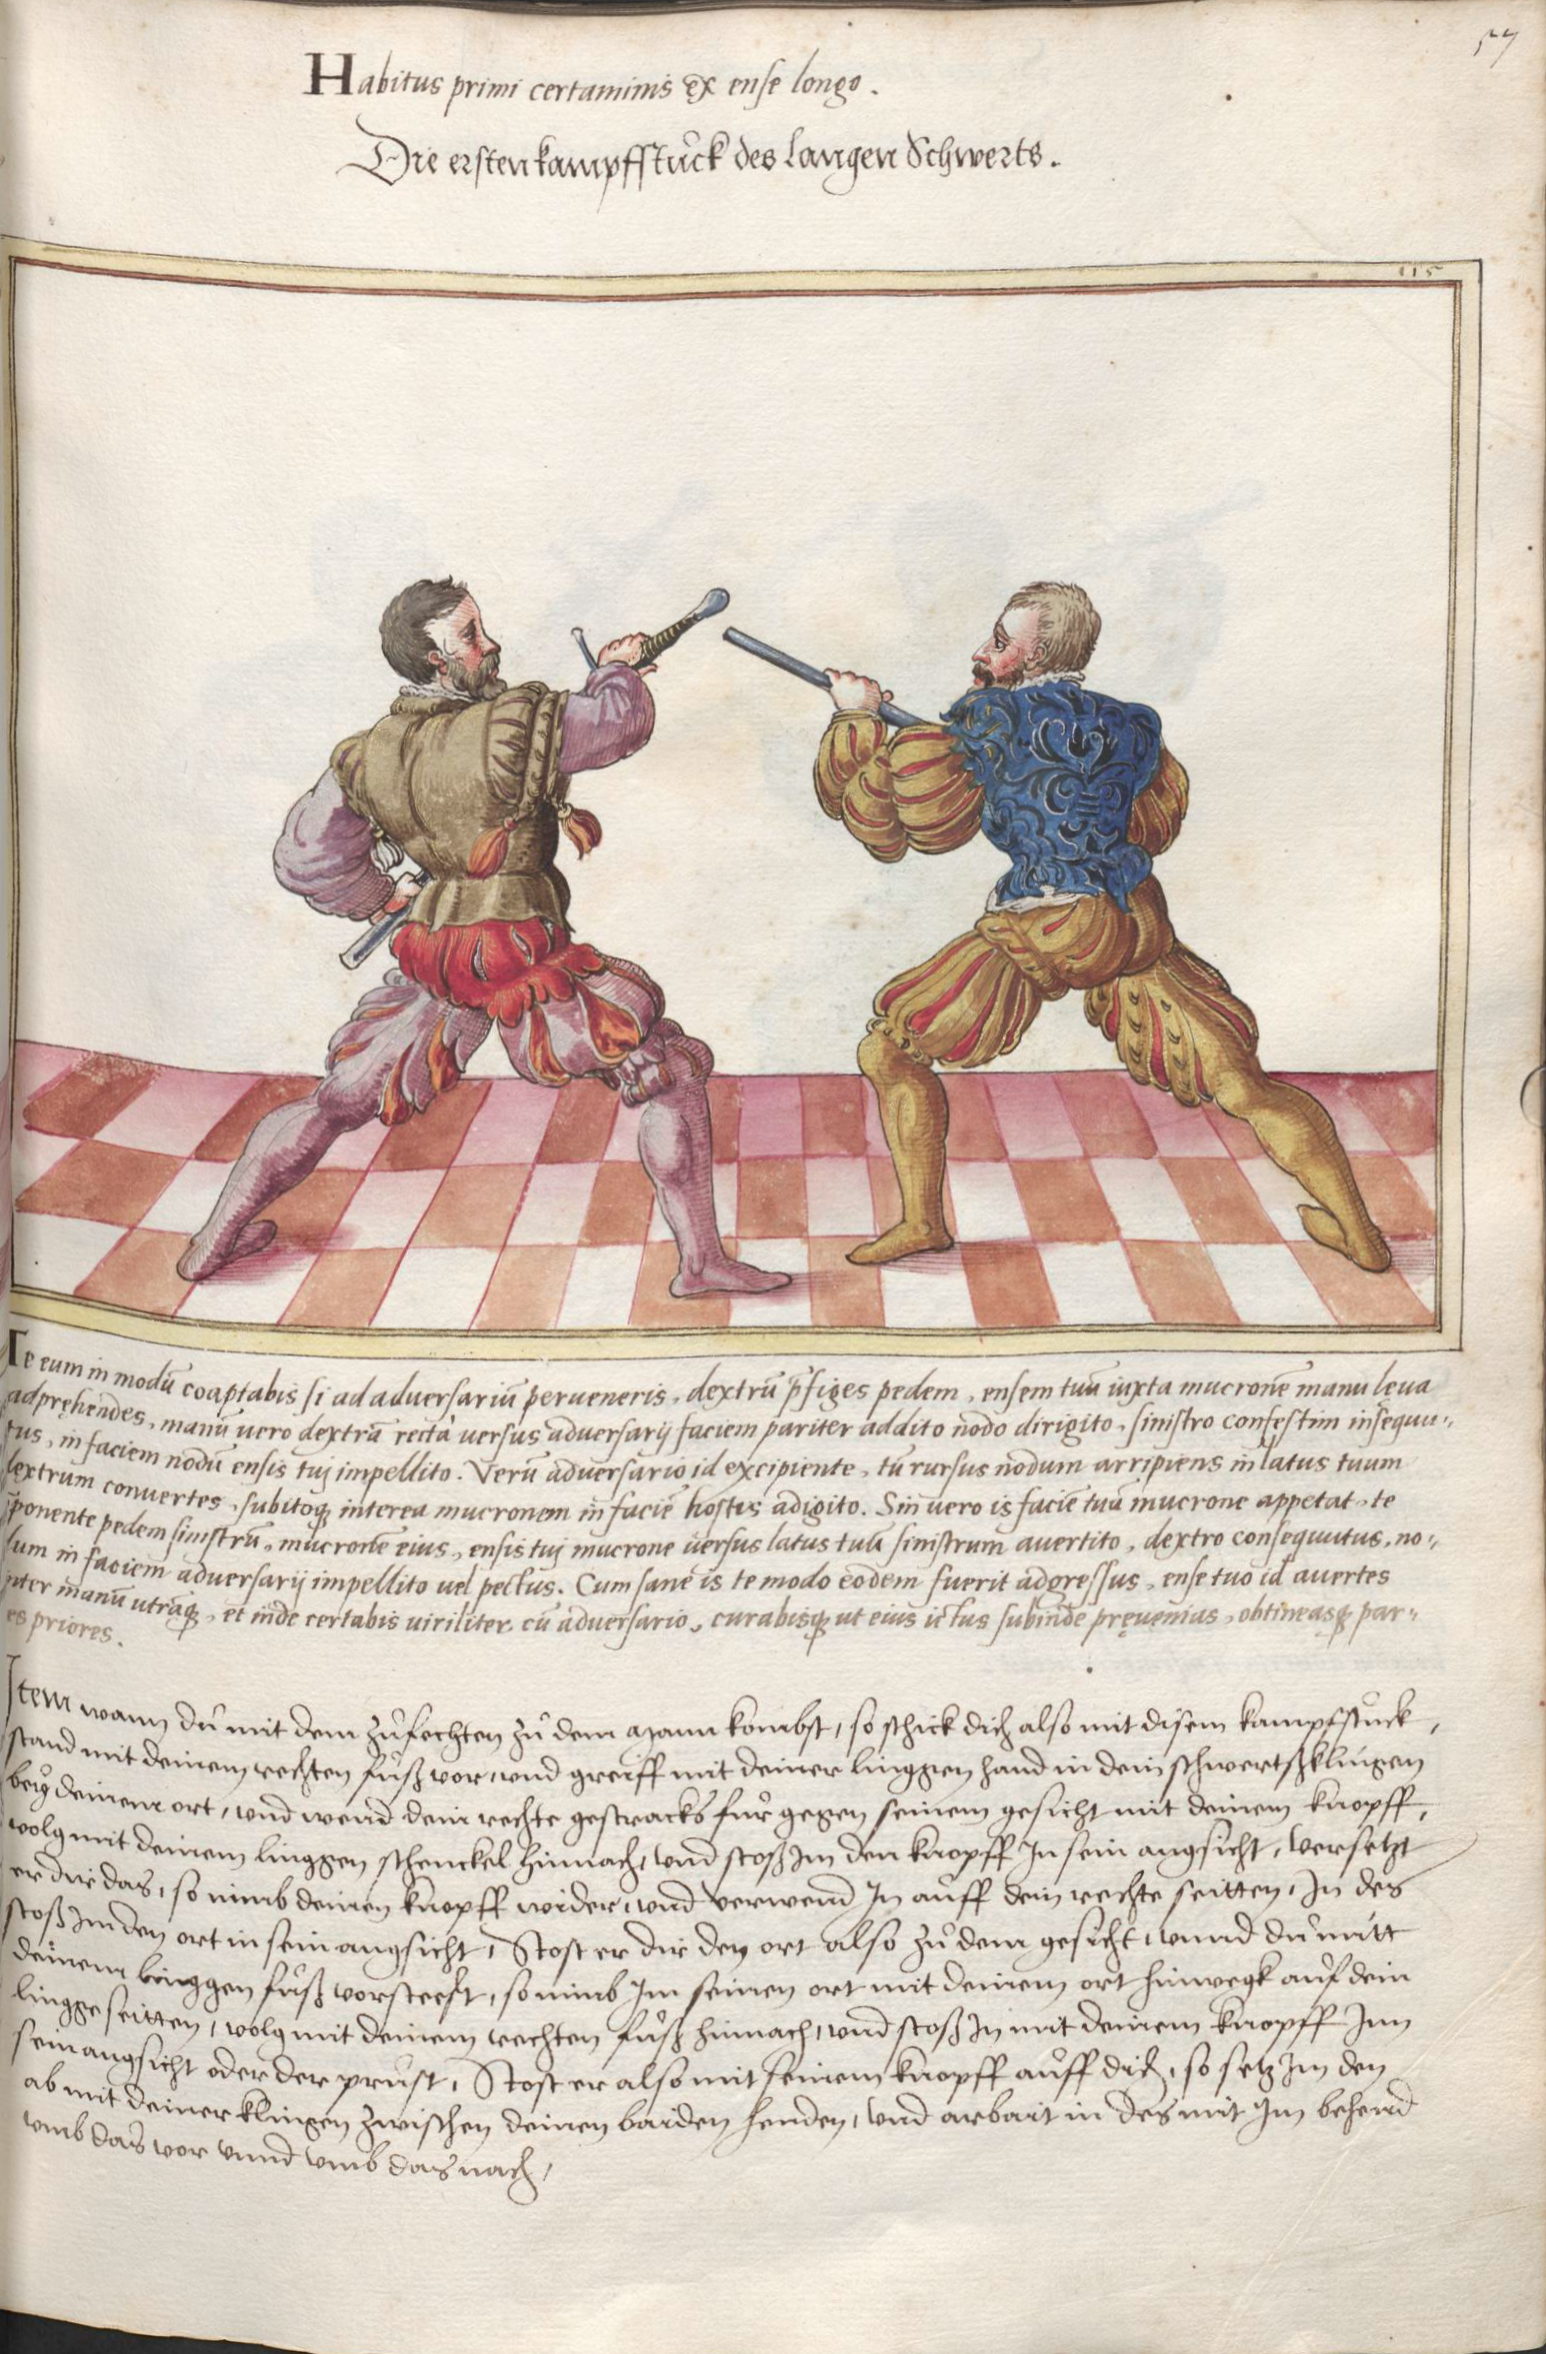 57
Habitus primi certaminis ex ense longo.
Die ersten kampfstuck des langen Schwerts.
115
Te eum in modũ coaptabis si ad adversariũ perveneris, dextrũ p̃figes pedem, ensem tuũ iuxta mucronẽ manu leva
adpręhendes, manũ vero dextrã recta versus adversarij faciem pariter addito nodo dirigito, sinistro confestim insequu-
tus, in faciem nodũ ensis tuj impellito. Verũ adversario id excipiente, tũ rursus nodum arripiens in latus tuum
dextrum convertes, subitoq; interea mucronem in faciẽ hostis adigito. Sin vero is faciẽ tuã mucrone appetat, te
ponente pedem sinistrũ, mucronẽ eius, ensis tuj mucrone versus latus tuũ sinistrum avertito, dextro consequutus, no-
lum in faciem adversarij impellito vel pectus. Cum sane is te modo eodem fuerit adgressus, ense tuo id avertes
nter manũ utrãq;, et inde certabis viriliter cũ adversario, curabisq; ut eius ictus subinde pręvenias, obtineasq; par-
es priores.
Item wann du mit dem zufechten zu dem mann kombst, so schick dich also mit disem kampfstuck,
stand mit deinem rechten fuß vor, und greiff mit deiner linggen hand in dein schwertßklingen
bey deinem ort, und wend dein rechte gestracks fur gegen seinem gesicht mit deinem knopff,
volg mit deinem linggen schenckel hinnach, und stoß Im den knopff In sein angsicht, versetzt
er dir das, so nimb deinen knopff wider, und verwend In auff dein rechte seitten, In des
stoß Im den ort in sein angsicht, Stost er dir den ort also zu dem gesicht, unnd du mitt
deinem linggen fuß vorsteest, so nimb Im seinen ort mit deinem ort hinwegk auf dein
lingge seitten, volg mit deinem rechten fuß hinnach, und stoß In mit deinem knopff Inn
sein angsicht oder der prust, Stost er also mit seinem knopff auff dich, so setz Im den
ab mit deiner klingen zwischen deinen baiden henden, und arbait in des mit Im behend
umb das vor unnd umb das nach,